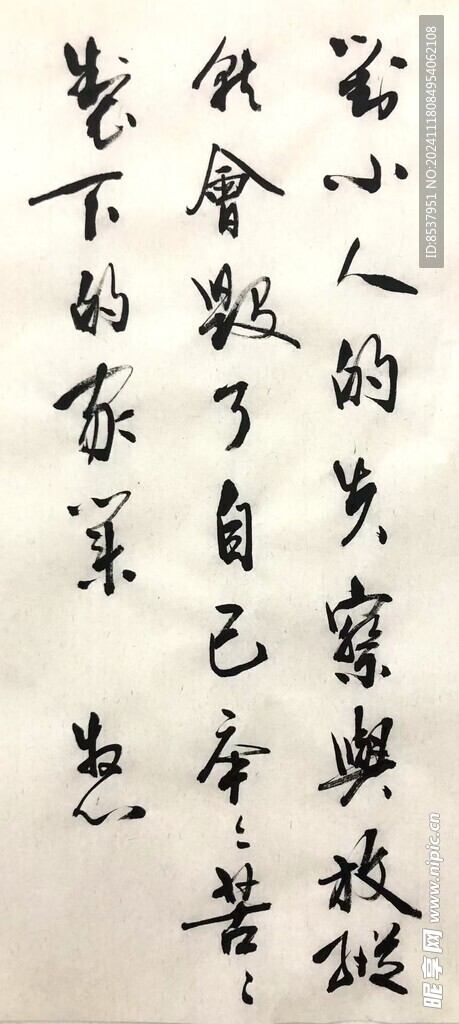 對小人的失察與放縱
就會毀了自己辛〻苦〻
製下的家業 牧心
ID:8537951 NO:20241118084954062108
昵享网 www.nipic.cn